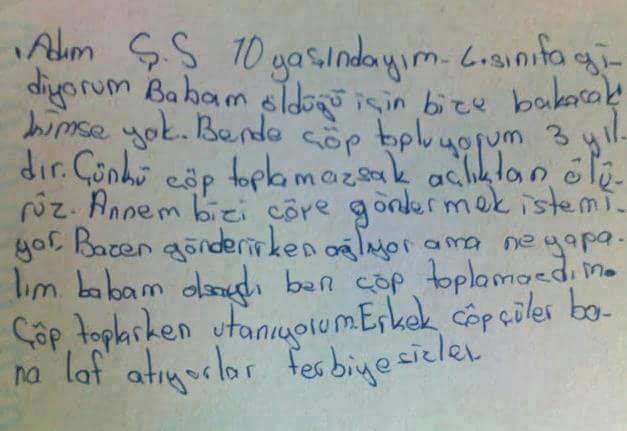 Adım Ş.S 10 yaşındayım. 4.sınıfa gi-
diyorum Babam öldüğü için bize bakacak
kimse yok. Bende çöp topluyorum 3 yıl-
dır. Çünkü çöp toplamazsak açlıktan ölü-
rüz. Annem bizi çöre göndermek istemi-
yor. Bazen gönderirken ağlıyor ama ne yapa-
lım babam olsaydı ben çöp toplamazdım.
Çöp toplarken utanıyorum. Erkek çöpçüler ba-
na laf atıyorlar terbiyesizler